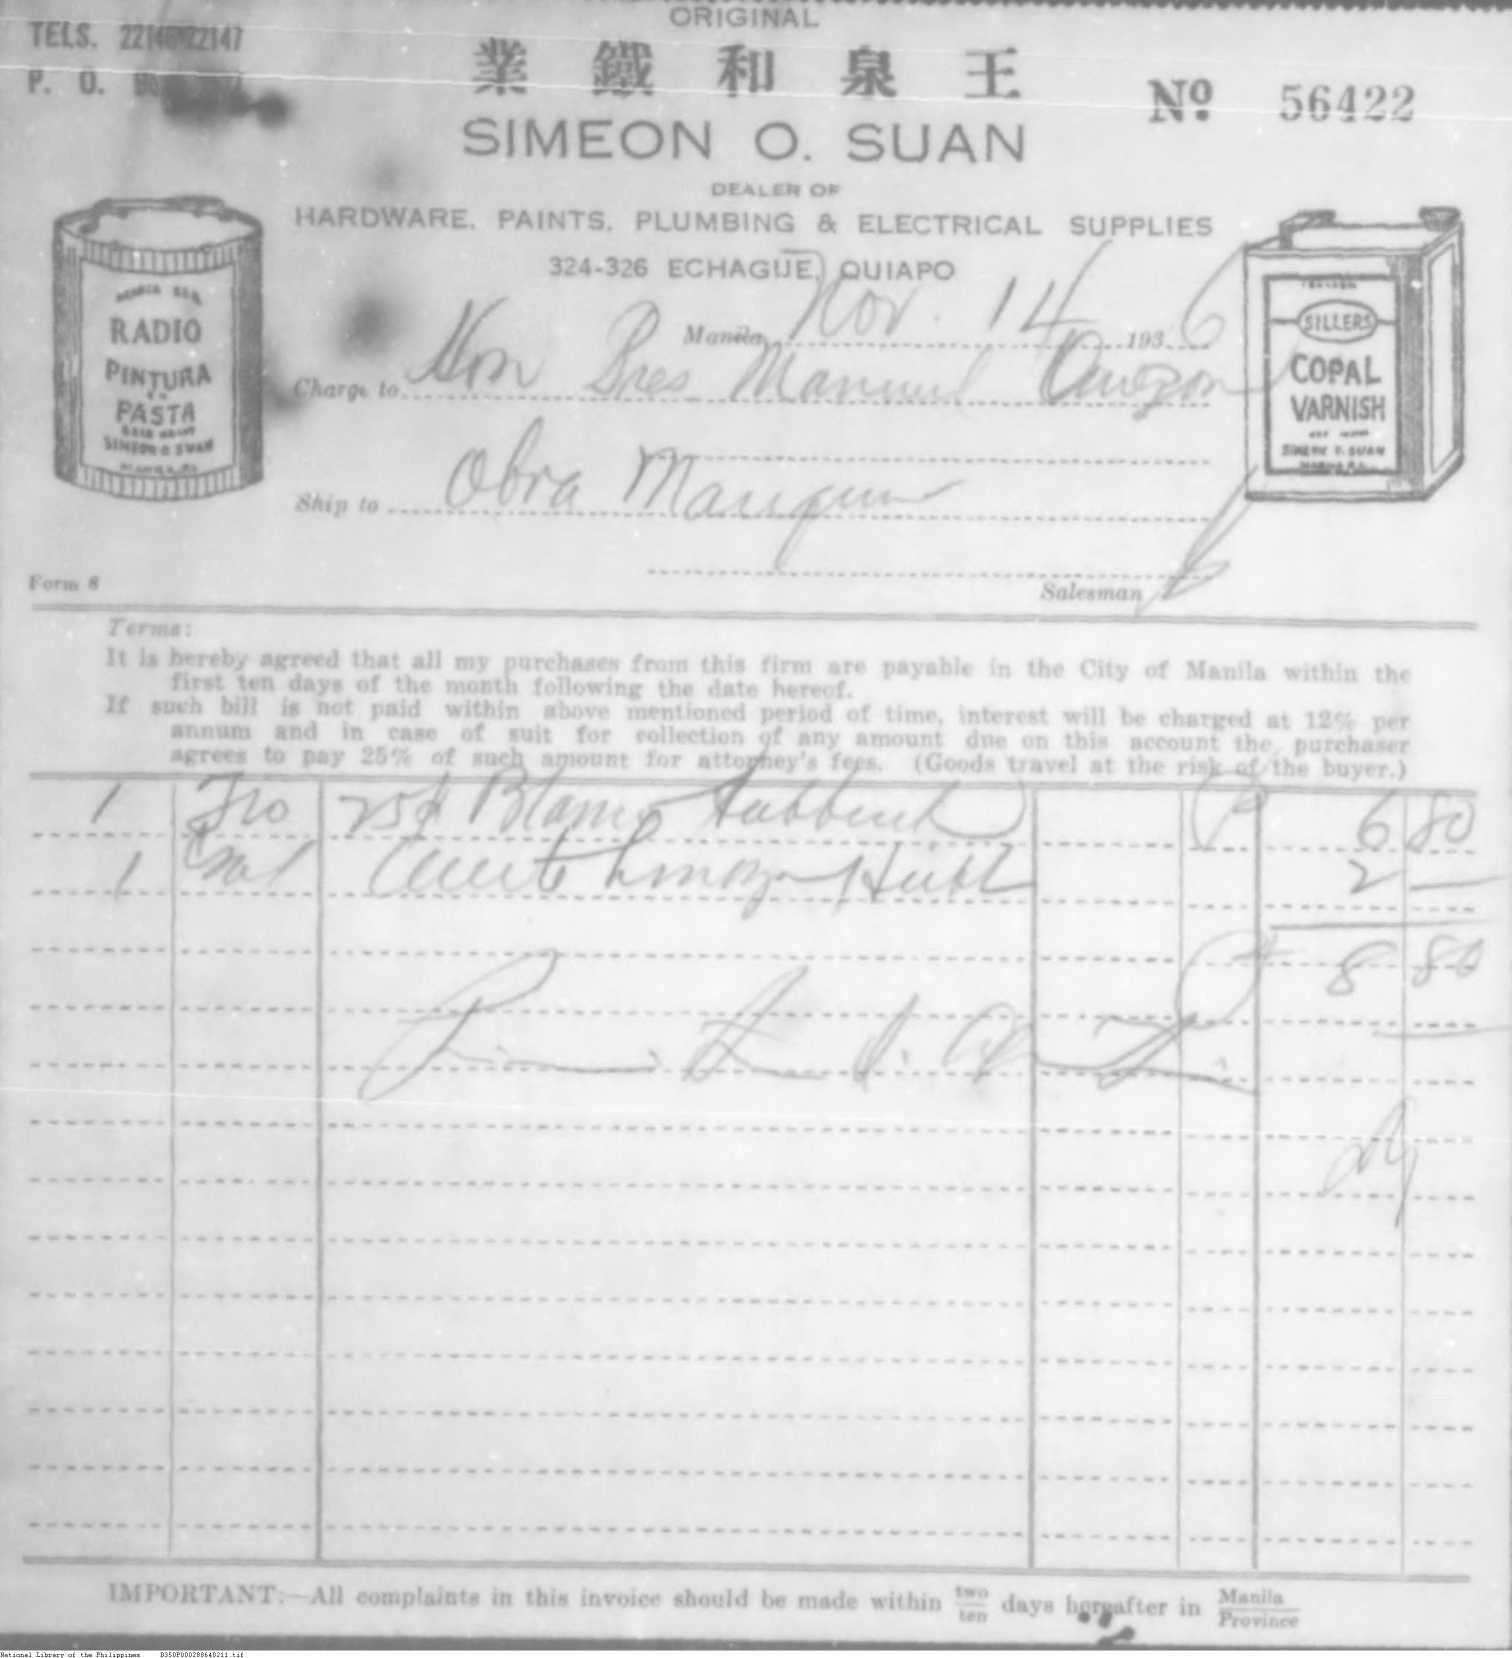 ORIGINAL
TELS. 22146 22147
業鐵和泉王
P. O.
Nº 56422
SIMEON O. SUAN
DEALER OF
HARDWARE, PAINTS, PLUMBING & ELECTRICAL SUPPLIES
324-326 ECHAGUE, QUIAPO
RADIO
PINTURA
EN
PASTA
SIMEON O SUAN
MANILA, P.I.
SILLERS
COPAL
VARNISH
SIMEON O. SUAN
MANILA P.I.
Manila, Nov. 14 1936
Charge to Hon Pres Manuel Quezon
Ship to Obra
Form 8
Salesman
Terms:
It is hereby agreed that all my purchases from this firm are payable in the City of Manila within the
first ten days of the month following the date hereof.
If such bill is not paid within above mentioned period of time, interest will be charged at 12% per
annum and in case of suit for collection of any amount due on this account the purchaser
agrees to pay 25% of such amount for attorney's fees. (Goods travel at the risk of the buyer.)
1 25# Blanco Hubbuck ₱ 6 80
1 Gal Aceite Linaza Hubb 2 —
₱ 8 80
IMPORTANT:—All complaints in this invoice should be made within two/ten days hereafter in Manila/Province
National Library of the Philippines B35OP000288640211.tif